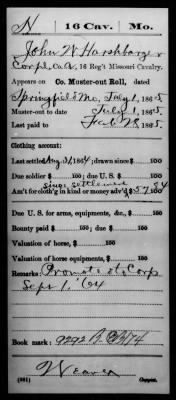 N | 16 Cav. | Mo.
John W Harshbarger
Corpl, Co. A, 16 Reg't Missouri Cavalry.
Appears on Co. Muster-out Roll, dated
Springfield Mo, July 1, 1865
Muster-out to date July 1, 1865
Last paid to Feb 28, 1865
Clothing account:
Last settled Aug 31, 1864; drawn since $ 100
Due soldier $ 100; due U. S. $ 100
since settlement
Am't for cloth'g in kind or money adv'd $ 57 84/100
Due U. S. for arms, equipments, &c., $ 100
Bounty paid $ 100; due $ 100
Valuation of horse, $ 100
Valuation of horse equipments, $ 100
Remarks: Promoted Corp
Sept 1, '64
Book mark: 9292
Weaver
(361) Copyist.